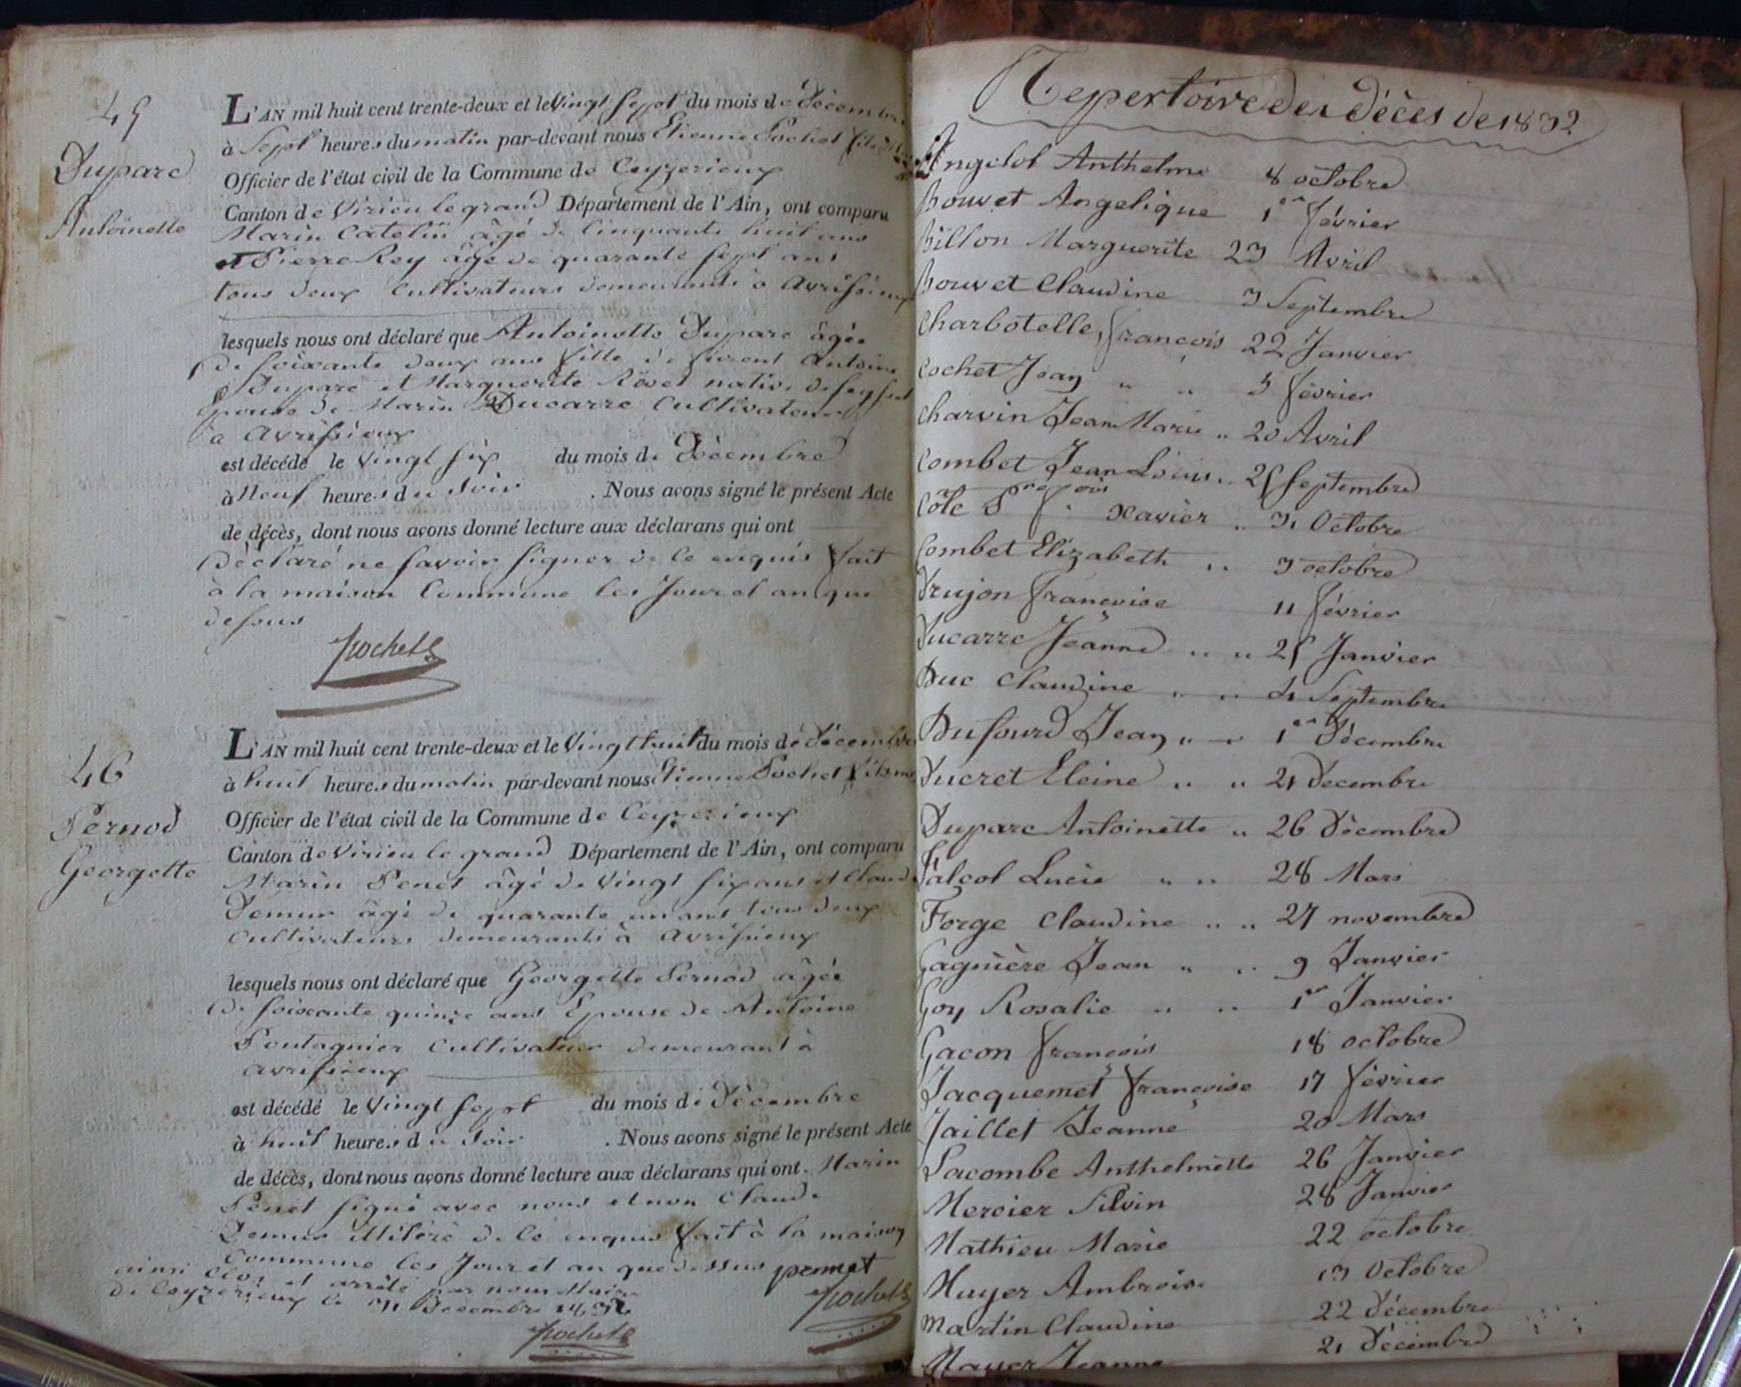 45
Duparc
Antoinette
L'AN mil huit cent trente-deux et le Vingt sept du mois de Décembre
à Sept heures du matin par-devant nous Etienne Pochet
Officier de l'état civil de la Commune de Ceyzerieux
Canton de Virieu le grand Département de l'Ain, ont comparu
Marin Catelin âgé de Cinquante huit ans
et Pierre Rey âgé de quarante sept ans
tous deux Cultivateurs demeurants à Avrissieux
lesquels nous ont déclaré que Antoinette Duparc âgée
De soixante deux ans fille de furent Antoine
Duparc et Marguerite native de
Epouse de Marin Ducarre Cultivateur
à Avrissieux
est décédé le Vingt six du mois de Décembre
à Neuf heures du soir . Nous avons signé le présent Acte
de décès, dont nous avons donné lecture aux déclarans qui ont
Déclaré ne savoir signer de ce enquis fait
à la maison Commune les Jour et an que
dessus
Pochet
46
Pernod
Georgette
L'AN mil huit cent trente-deux et le Vingt huit du mois de Décembre
à huit heures du matin par-devant nous Etienne Pochet
Officier de l'état civil de la Commune de Ceyzerieux
Canton de Virieu le grand Département de l'Ain, ont comparu
Marin Penet âgé de Vingt six ans et Claude
Demur âgé de quarante un ans tous deux
Cultivateurs demeurants à Avrissieux
lesquels nous ont déclaré que Georgette Pernod âgée
De soixante quinze ans Epouse de Antoine
Pontagnier Cultivateur demeurant à
Avrissieux
est décédé le Vingt sept du mois de Décembre
à huit heures du soir . Nous avons signé le présent Acte
de décès, dont nous avons donné lecture aux déclarans qui ont Marin
Penet signé avec nous et non Claude
Demur illiteré de ce enquis fait à la maison
Commune les Jour et an que dessus pennet
ainsi clos et arrêté par nous Maire
de Ceyzerieux le 31 Décembre 1832
Pochet
Pochet
Repertoire des décès de 1832
Angelot Anthelme 8 octobre
Bouvet Angelique 1er février
Billon Marguerite 23 Avril
Bouvet Claudine 3 Septembre
Charbotelle françois 22 Janvier
Cochet Jean " " 5 février
Charvin Jean Marie " 20 Avril
Combet Jean Loius " 25 Septembre
Côte françois Xavier " 31 Octobre
Combet Elizabeth " 3 octobre
Drujon françoise 11 février
Ducarre Jeanne " " 25 Janvier
Duc Claudine " " 4 Septembre
Dufourd Jean " " 1er Décembre
Ducret Eleine " " 21 Decembre
Duparc Antoinette " 26 Décembre
Falcol Lucie " " 28 Mars
Forge Claudine " " 27 novembre
Gagnière Jean " " 9 Janvier
Goy Rosalie " " 1er Janvier
Gacon françois 18 octobre
Jacquemet françoise 17 février
Jaillet Jeanne 20 Mars
Lacombe Anthelmette 26 Janvier
Mercier Silvin 28 Janvier
Mathieu Marie 22 octobre
Muyer Ambroise 13 Octobre
Martin Claudine 22 Décembre
Mayer Jeanne 21 Décembre